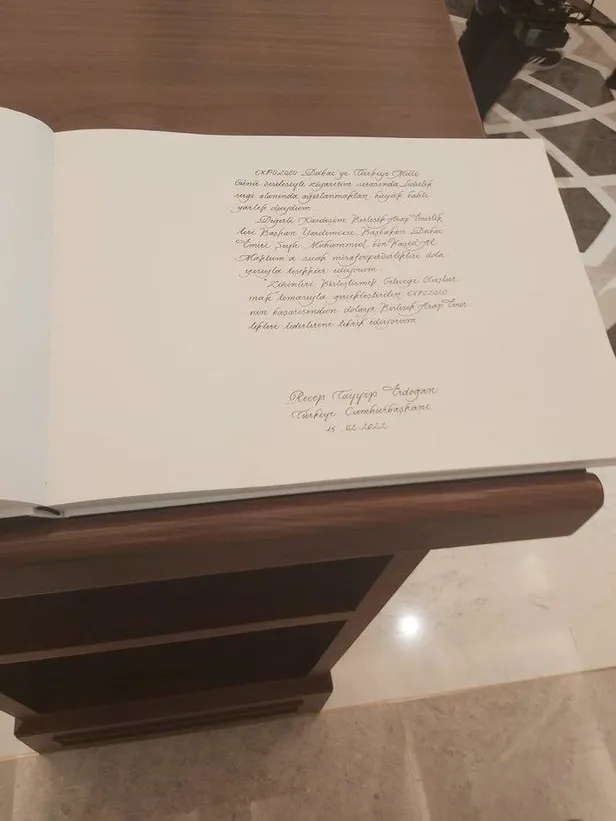 EXPO2020 Dubai'yi Türkiye Milli
Günü vesilesiyle ziyaretim sırasında, Liderlik
sergi alanında ağırlanmaktan büyük bahti
yarlık duydum.
Değerli Kardeşim Birleşik Arap Emirlik
leri Başkan Yardımcısı, Başbakan Dubai
Emiri Şeyh Muhammed bin Raşid Al
Maktum'a sıcak misafirperverlikleri dola
yısıyla teşekkür ediyorum.
"Zihinleri Birleştirmek Geleceği Oluştur
mak" temasıyla gerçekleştirilen EXPO2020
nin başarısından dolayı Birleşik Arap Emir
likleri liderlerini tebrik ediyorum.
Recep Tayyip Erdoğan
Türkiye Cumhurbaşkanı
15.02.2022